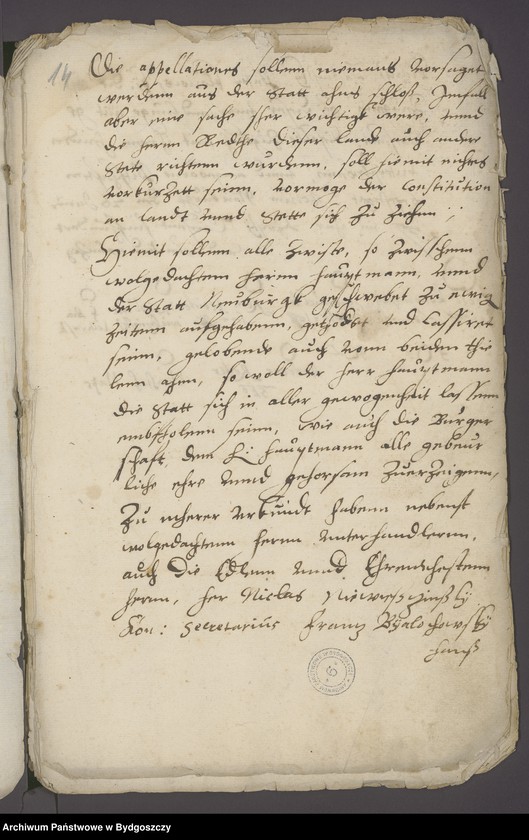 14
Die appellationes sollenn niemants vorsaget
werdenn aus der Statt ahns schloß, Imfall
aber eine sache sher wichtigk were, unnd
die herrn Redthe dieser lande auch andere
Stete richtenn wurdenn, soll hiemit nichtes
vorkurzett seinn, vormoge der Constitution
an landt unnd Stette sich zu ziehen
Hiemit sollenn alle Zwiste, so zwisschenn
wolgedachtenn herrnn hauptmann, unnd
der Statt Neuburgk geschwebet zu ewig
Zeitenn aufgehabenn, getodtet und Cassiret
seinn, gelobende auch vonn beiden thei
lenn, so woll der herr hauptmann
die Statt sich in aller gewogenheit lassenn
empfholenn seinn, wie auch die Burger
schafft, dem H: hauptmann alle gebeur
liche ehre unnd gehorsam zuerzeigenn,
Zu meherer Urkundt habenn nebenst
wolgedachtenn herrn unterhandlernn,
auch die Edlenn unnd Ehrenvhestenn
herrnn, her Niclas
Kön: Secretarius Frantz Byalochowsky
hanß
6
Archiwum Państwowe w Bydgoszczy